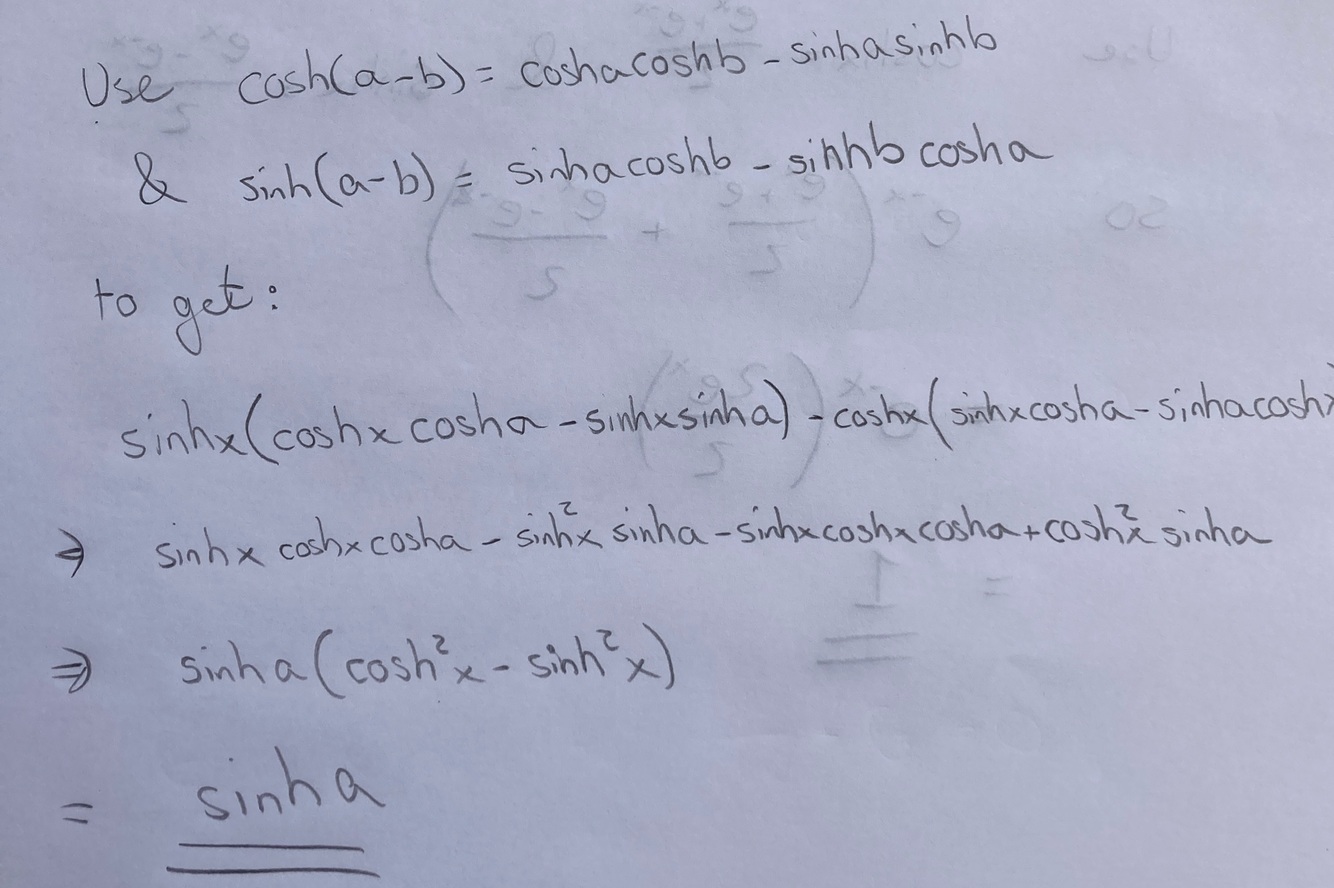 Use cosh(a-b) = coshacoshb - sinhasinhb
& sinh(a-b) = sinhacoshb - sinhbcosha
to get:
sinhx(coshxcosha - sinhxsinha) - coshx(sinhxcosha - sinhacoshx
⇒ sinhx coshxcosha - sinh²x sinha - sinhxcoshxcosha + cosh²x sinha
⇒ sinha(cosh²x - sinh²x)
= sinha